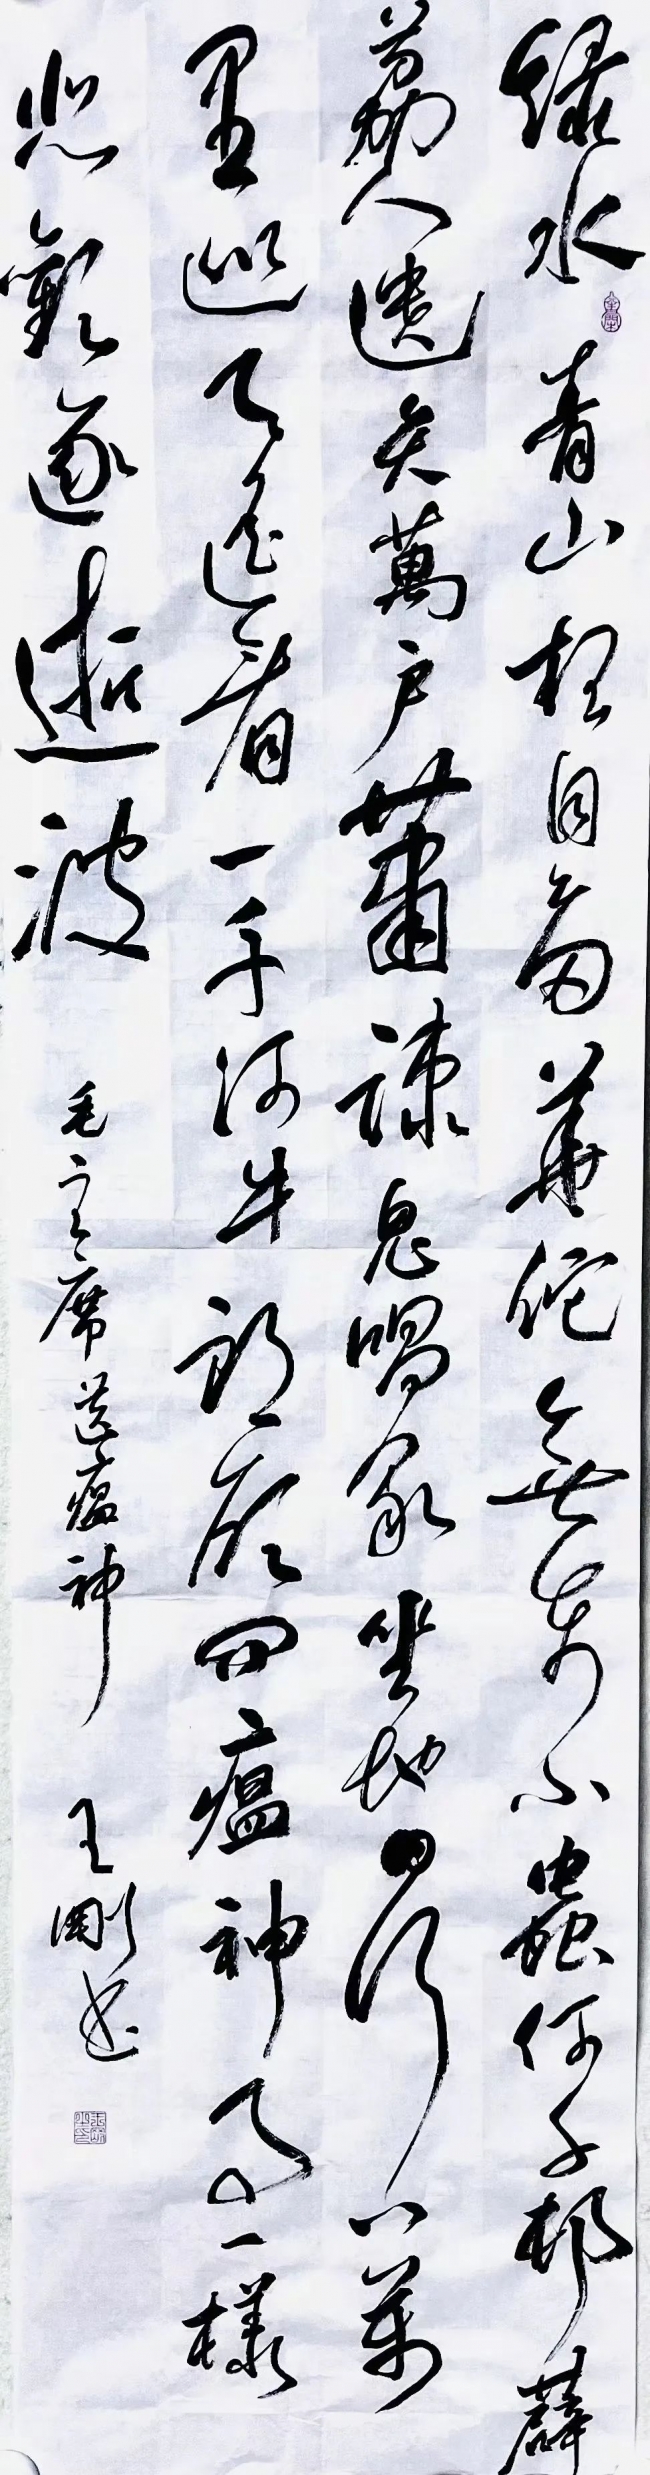 綠水青山枉自多華佗無奈小蟲何千村薜
荔人遺矢萬戶蕭疎鬼唱歌坐地日行八萬
里巡天遙看一千河牛郎欲問瘟神事一樣
悲歡逐逝波
毛主席送瘟神
王剛书